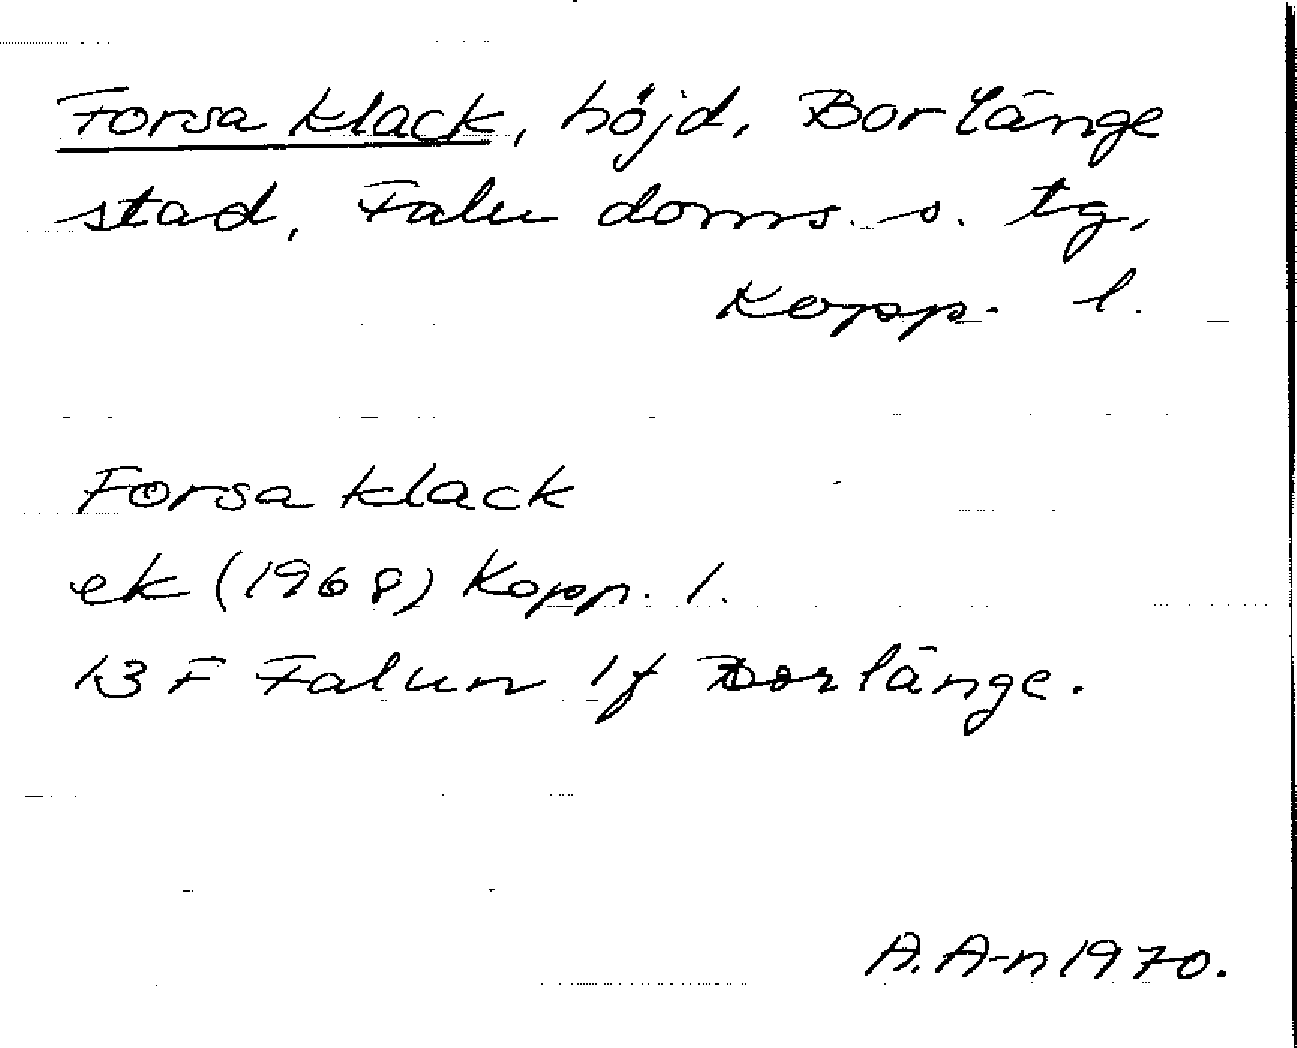 Forsa klack, höjd, Borlänge
stad, Falu doms. s. tg,
Kopp. l.
Forsa klack
ek (1968) Kopp. l.
13 F Falun 1f Borlänge.
A. A-n 1970.